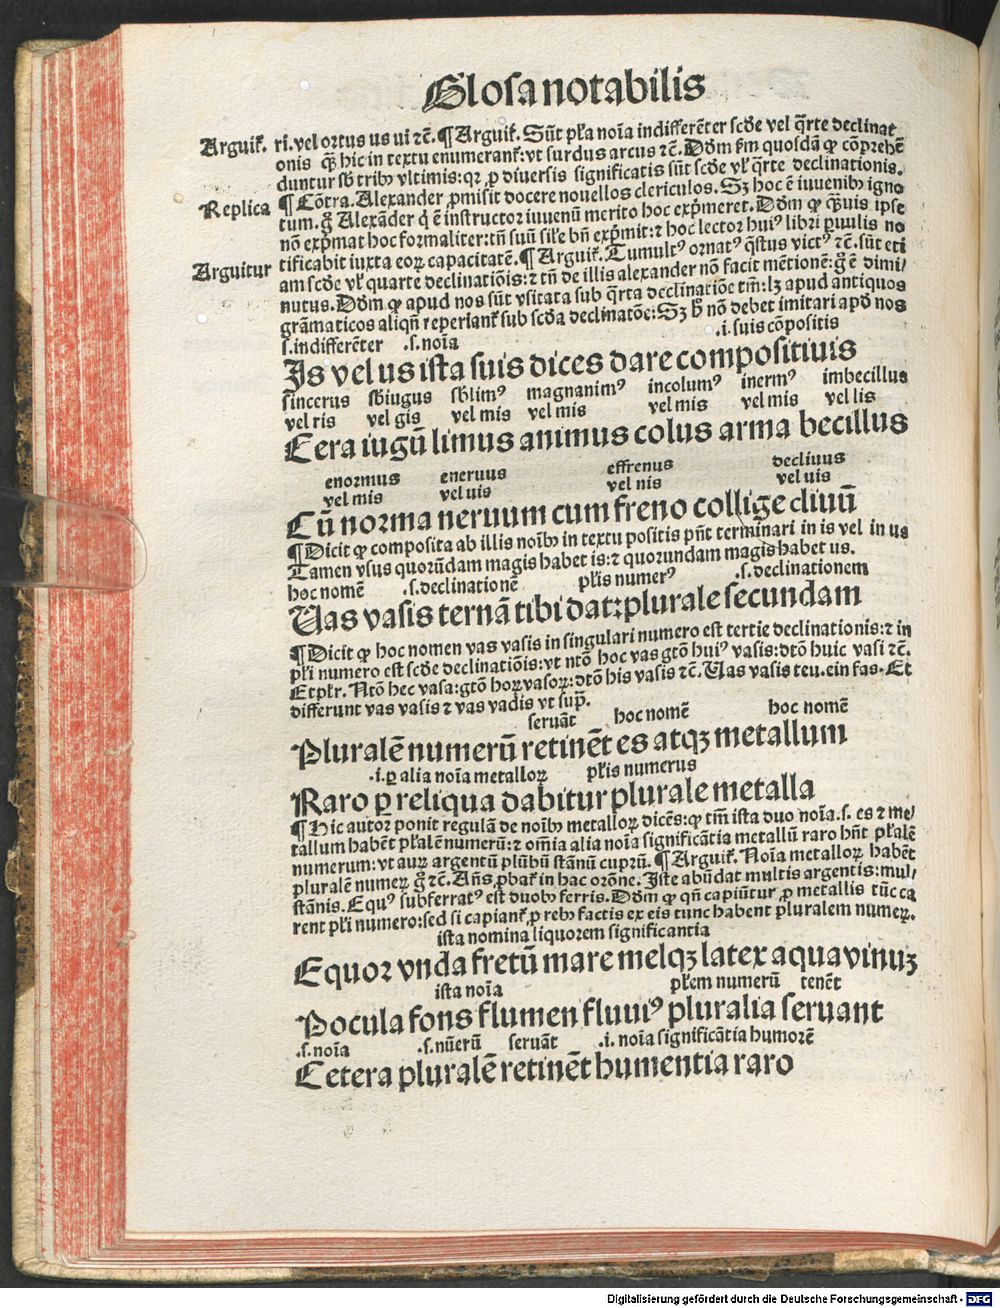 Glosa notabilis
Arguit̃. ri. vel ortus us ui ꝛc̃. ¶ Arguit̃. Sūt pl̃a noīa indifferẽter scḋe vel q̃rte declinat
onis q̃ hic in textu enumerant̃: vt surdus arcus ꝛc̃. Dōm ẜm quosdā ꝙ cōprehē
duntur sb̾ tribꝰ vltimis: qꝛ ꝓ diuersis significatis sūt scḋe vl̾ q̃rte declinationis.
Replica ¶ Cōtra. Alexander ꝓmisit docere nouellos clericulos. Sꝫ hoc ē iuuenibꝰ igno
tum. g̊ Alexāder q̇ ē instructor iuuenū merito hoc exp̃meret. Dōm ꝙ q̃uis ipse
nō exp̃mat hoc formaliter: tn̄ suū sil̾e bn̄ exp̃mit: ⁊ hoc lector huiꝰ libri ꝑuulis no
Arguitur tificabit iuxta eoꝝ capacitatē. ¶ Arguit̃. Tumultꝰ ornatꝰ q̃stus victꝰ ꝛc̃. sūt eti
am scḋe vl̾ quarte declinatiōis: ⁊ tn̄ de illis alexander nō facit mētionē: g̊ ē dimi/
nutus. Dōm ꝙ apud nos sūt vsitata sub q̃rta declinatiōe tm̄: lꝫ apud antiquos
grāmaticos aliqñ reperiant̃ sub scḋa declinatōe: Sꝫ h̾ nō debet imitari apḋ nos
s. indifferēter .s. noīa .i. suis cōpositis
Is vel us ista suis dices dare compositiuis
sincerus sb̾iugus sb̾limꝰ magnanimꝰ incolumꝰ inermꝰ imbecillus
vel ris vel gis vel mis vel mis vel mis vel mis vel lis
Cera iugū limus animus colus arma becillus
enormus eneruus effrenus decliuus
vel mis vel uis vel nis vel uis
Cū norma neruum cum freno collige cliuū
¶ Dicit ꝙ composita ab illis noībꝰ in textu positis pñt terminari in is vel in us
Tamen vsus quorūdam magis habet is: ⁊ quorundam magis habet us.
hoc nomē .s. declinationē pl̾is numerꝰ .s. declinationem
Uas vasis ternā tibi dat: plurale secundam
¶ Dicit ꝙ hoc nomen vas vasis in singulari numero est tertie declinationis: ⁊ in
pl̾i numero est scḋe declinatiōis: vt ntō hoc vas gtō huiꝰ vasis: dtō huic vasi ꝛc̃.
Et pl̾r. Ntō hec vasa: gtō hoꝝ vasoꝝ: dtō his vasis ꝛc̃. Uas vasis teu. ein fas. Et
differunt vas vasis ⁊ vas vadis vt sup̃.
seruāt hoc nomē hoc nomē
Pluralē numerū retinēt es atqꝫ metallum
.i. ꝑ alia noīa metalloꝝ pl̾is numerus
Raro ꝑ reliqua dabitur plurale metalla
¶ Hic autor ponit regulā de noībꝰ metalloꝝ dicēs: ꝙ tm̄ ista duo noīa .s. es ⁊ me/
tallum habēt pl̾alē numerū: ⁊ om̄ia alia noīa significātia metallū raro hñt pl̾alē
numerum: vt auꝝ argentū plūbū stānū cuprū. ¶ Arguit̃. Noīa metalloꝝ habēt
pluralē numeꝝ g̊ ꝛc̃. Añs ꝓbat̃ in hac orōne. Iste abūdat multis argentis: mul/
stānis. Equꝰ subferratꝰ est duobꝰ ferris. Dōm ꝙ qñ capiūtur ꝓ metallis tūc ca
rent pl̾i numero: sed si capiant̃ ꝓ rebꝰ factis ex eis tunc habent pluralem numeꝝ.
ista nomina liquorem significantia
Equor vnda fretū mare melqꝫ latex aqua vinuꝫ
ista noīa pl̾em numerū tenēt
Pocula fons flumen fluuiꝰ pluralia seruant
.s. noīa .s. nūerū seruāt .i. noīa significātia humorē
Cetera pluralē retinēt humentia raro
Digitalisierung gefördert durch die Deutsche Forschungsgemeinschaft - DFG